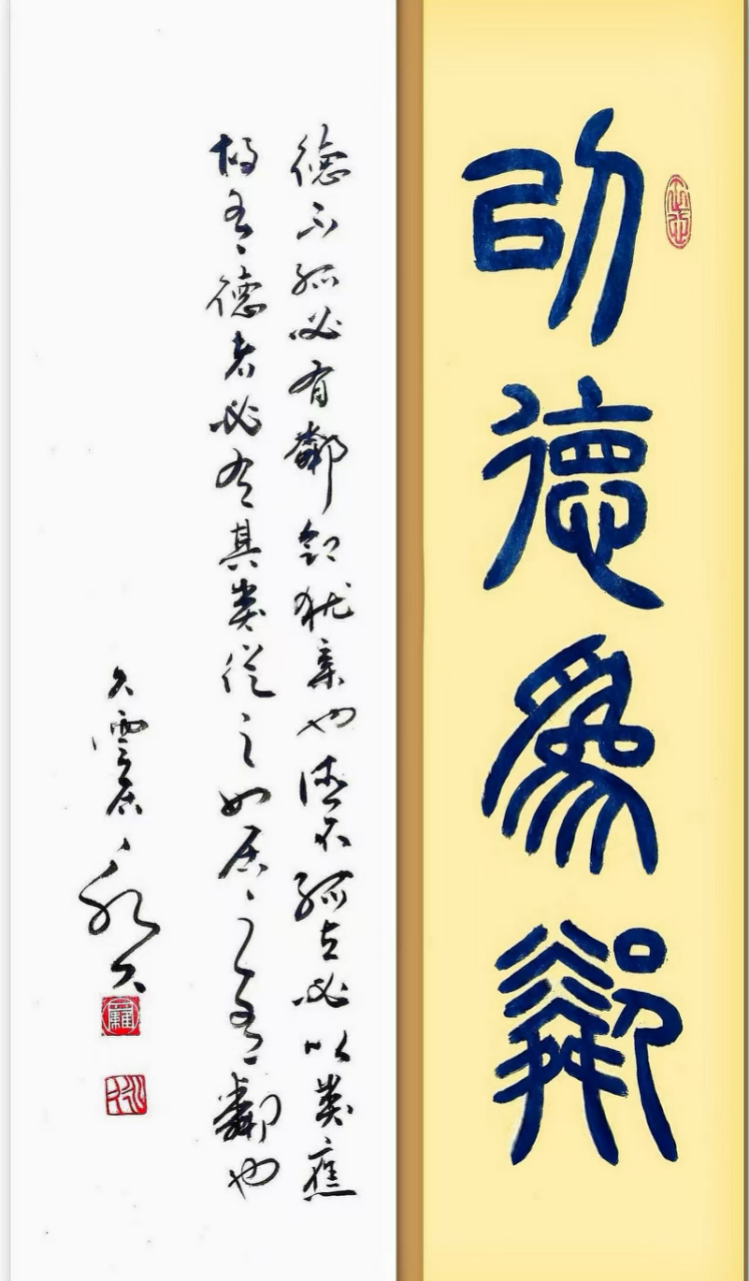 以德為鄰
德不孤必有鄰鄰猶親也德不孤立必以类應
故有德者必有其类從之如居之有鄰也
久雲居永久